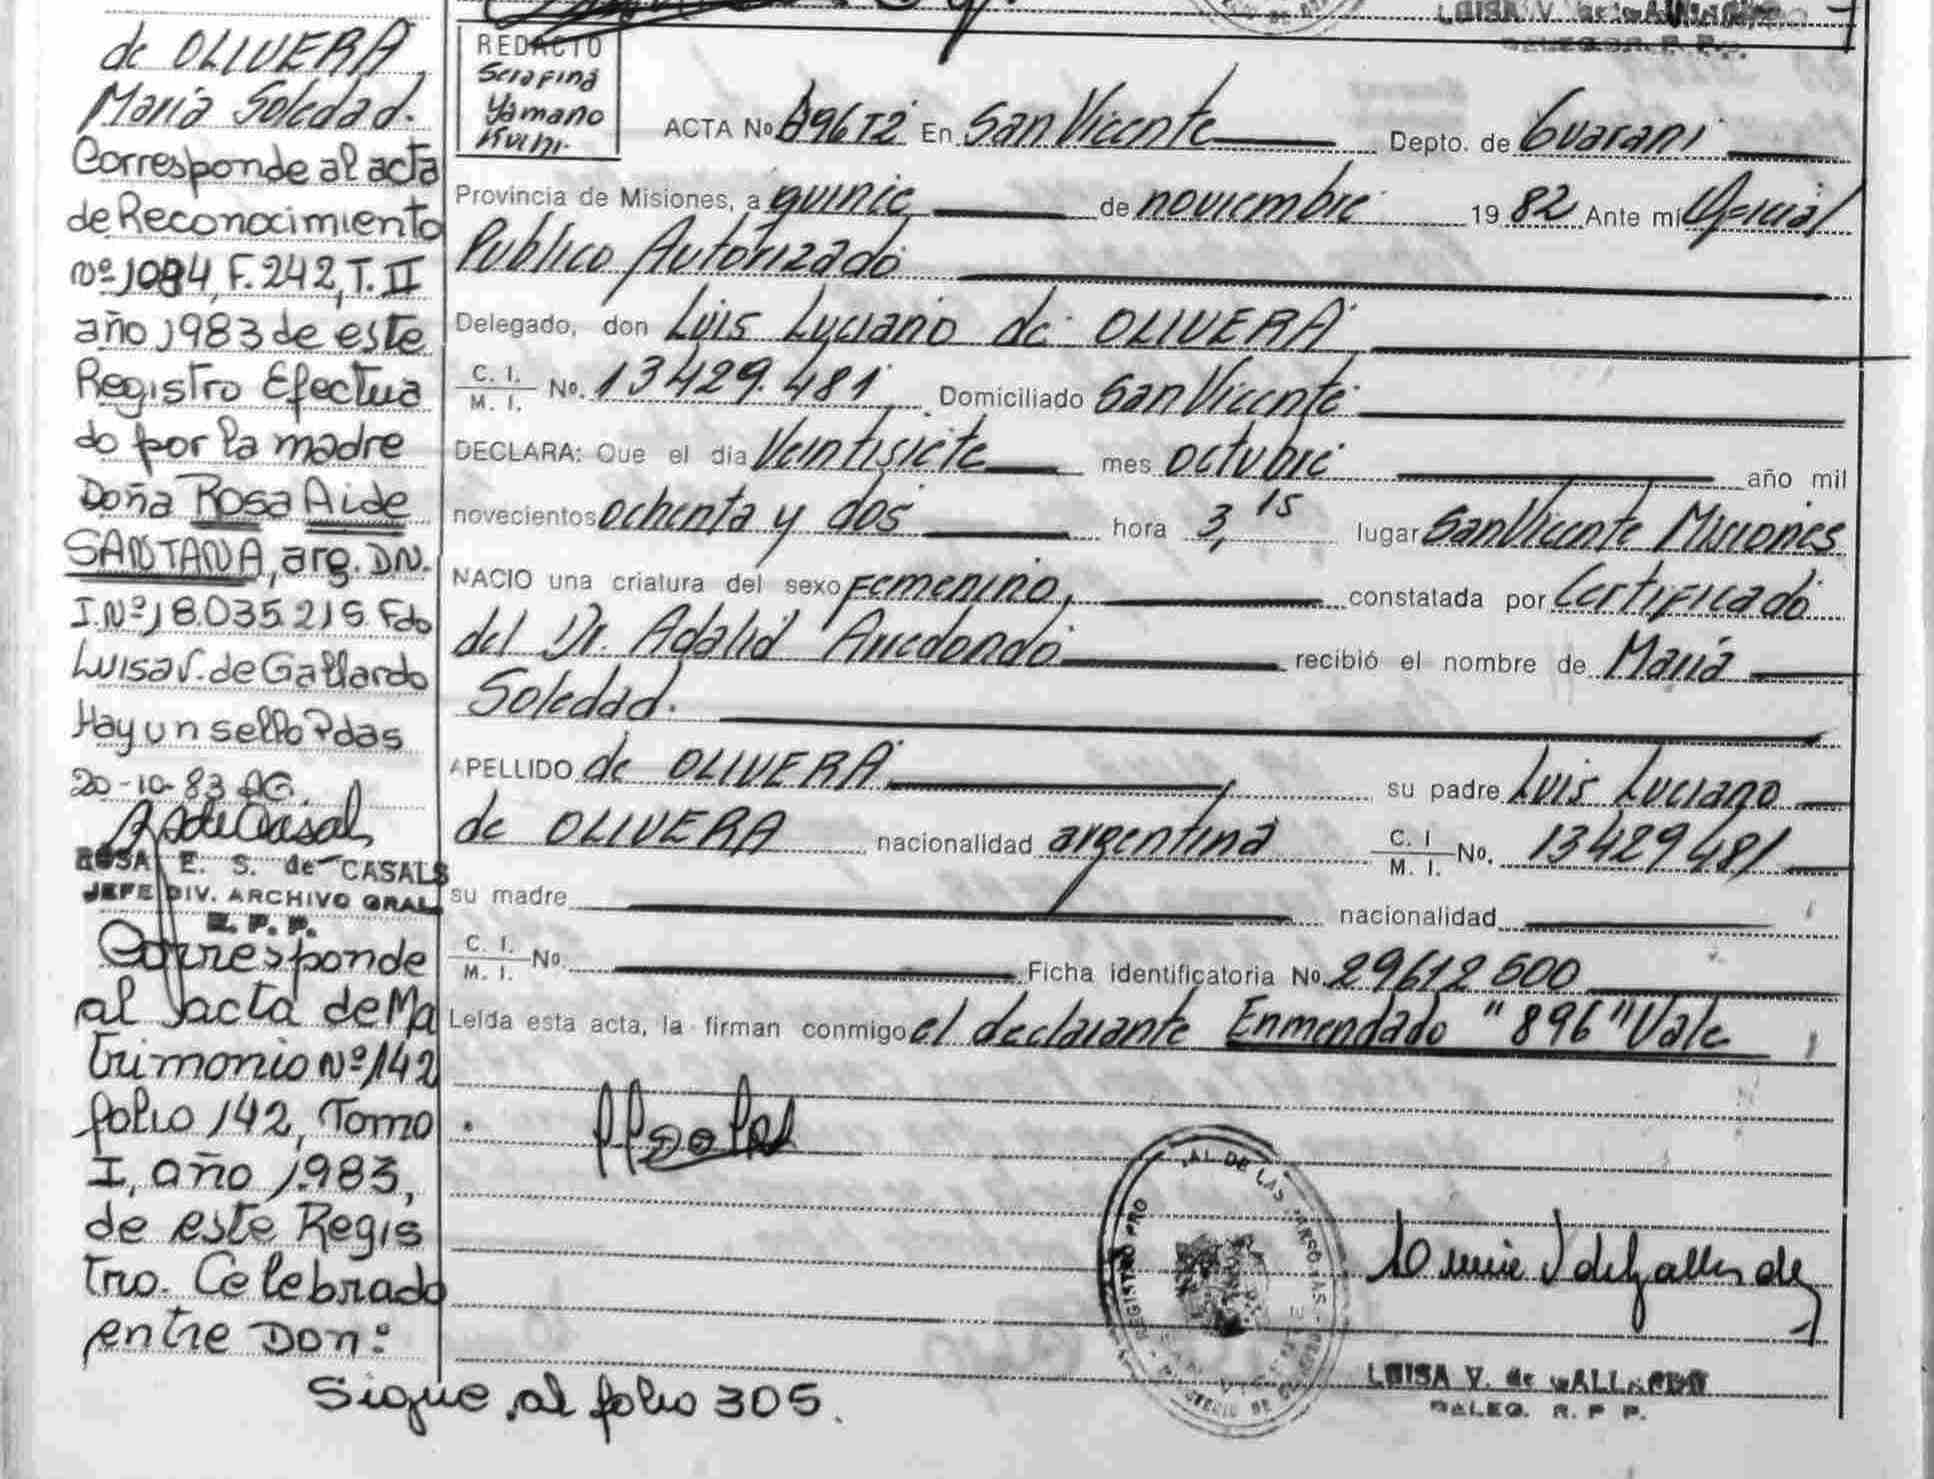 de OLIVERA,
María Soledad.
Corresponde al acta
de Reconocimiento
Nº 1084, F. 242, T. II
año 1983 de este
Registro Efectua
do por la madre
Doña Rosa Aide
SANTANA, arg. DN.
I. Nº 18.035.215. Fdo
Luisa V. de Gallardo
Hay un sello Pdas
20-10-83 AG.
ROSA E. S. de CASALS
JEFE DIV. ARCHIVO GRAL
R. P. P.
Corresponde
al acta de Ma
trimonio Nº 142
folio 142, Tomo
I, año 1983,
de este Regis
tro. Celebrado
entre Don:
Sigue al folio 305.
REDACTO
Serafina
Yamano
ACTA No 896 T2 En San Vicente Depto. de Guarani
Provincia de Misiones, a quince de noviembre 19 82 Ante mi Oficial
Publico Autorizado
Delegado, don Luis Luciano de OLIVERA
C. I. / M. I. No. 13429.481 Domiciliado San Vicente
DECLARA: Que el día Veintisiete mes octubre año mil
novecientos ochenta y dos hora 3,15 lugar San Vicente Misiones
NACIO una criatura del sexo Femenino, constatada por Certificado
del Dr. Adalid Arredondo recibió el nombre de María
Soledad.
APELLIDO de OLIVERA, su padre Luis Luciano
de OLIVERA nacionalidad argentina C. I / M. I. No. 13429481
su madre nacionalidad
C. I. / M. I. No. Ficha identificatoria No. 29612500
Leída esta acta, la firman conmigo el declarante Enmendado "896" Vale
LUISA V. de GALLARDO
DELEG. R. P. P.